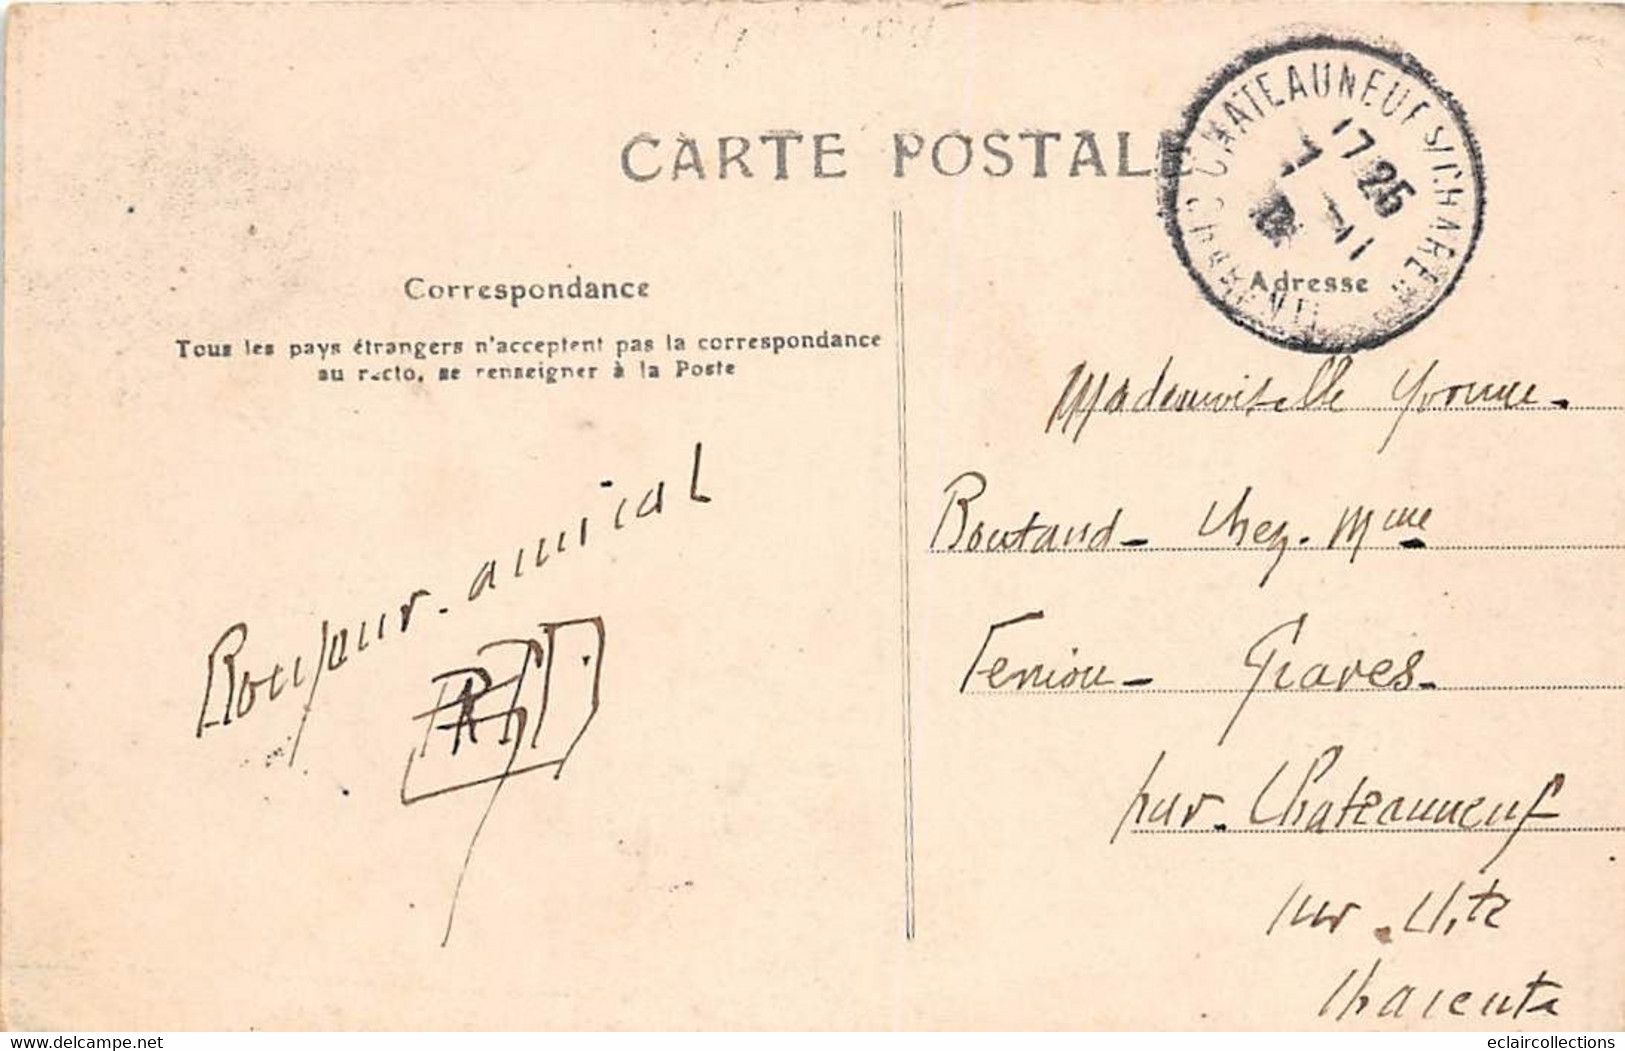 CARTE POSTALE
CHATEAUNEUF S/CHARENTE
17 25
7 11
CHARENTE
Correspondance
Adresse
Tous les pays étrangers n'acceptent pas la correspondance
au recto, se renseigner à la Poste
Mademoiselle Yvonne
Boutaud - Chez. Mme
Feniou - Graves -
par. Chateauneuf
sur. Chte
Charente
Bonjour - amical
eclaircollections